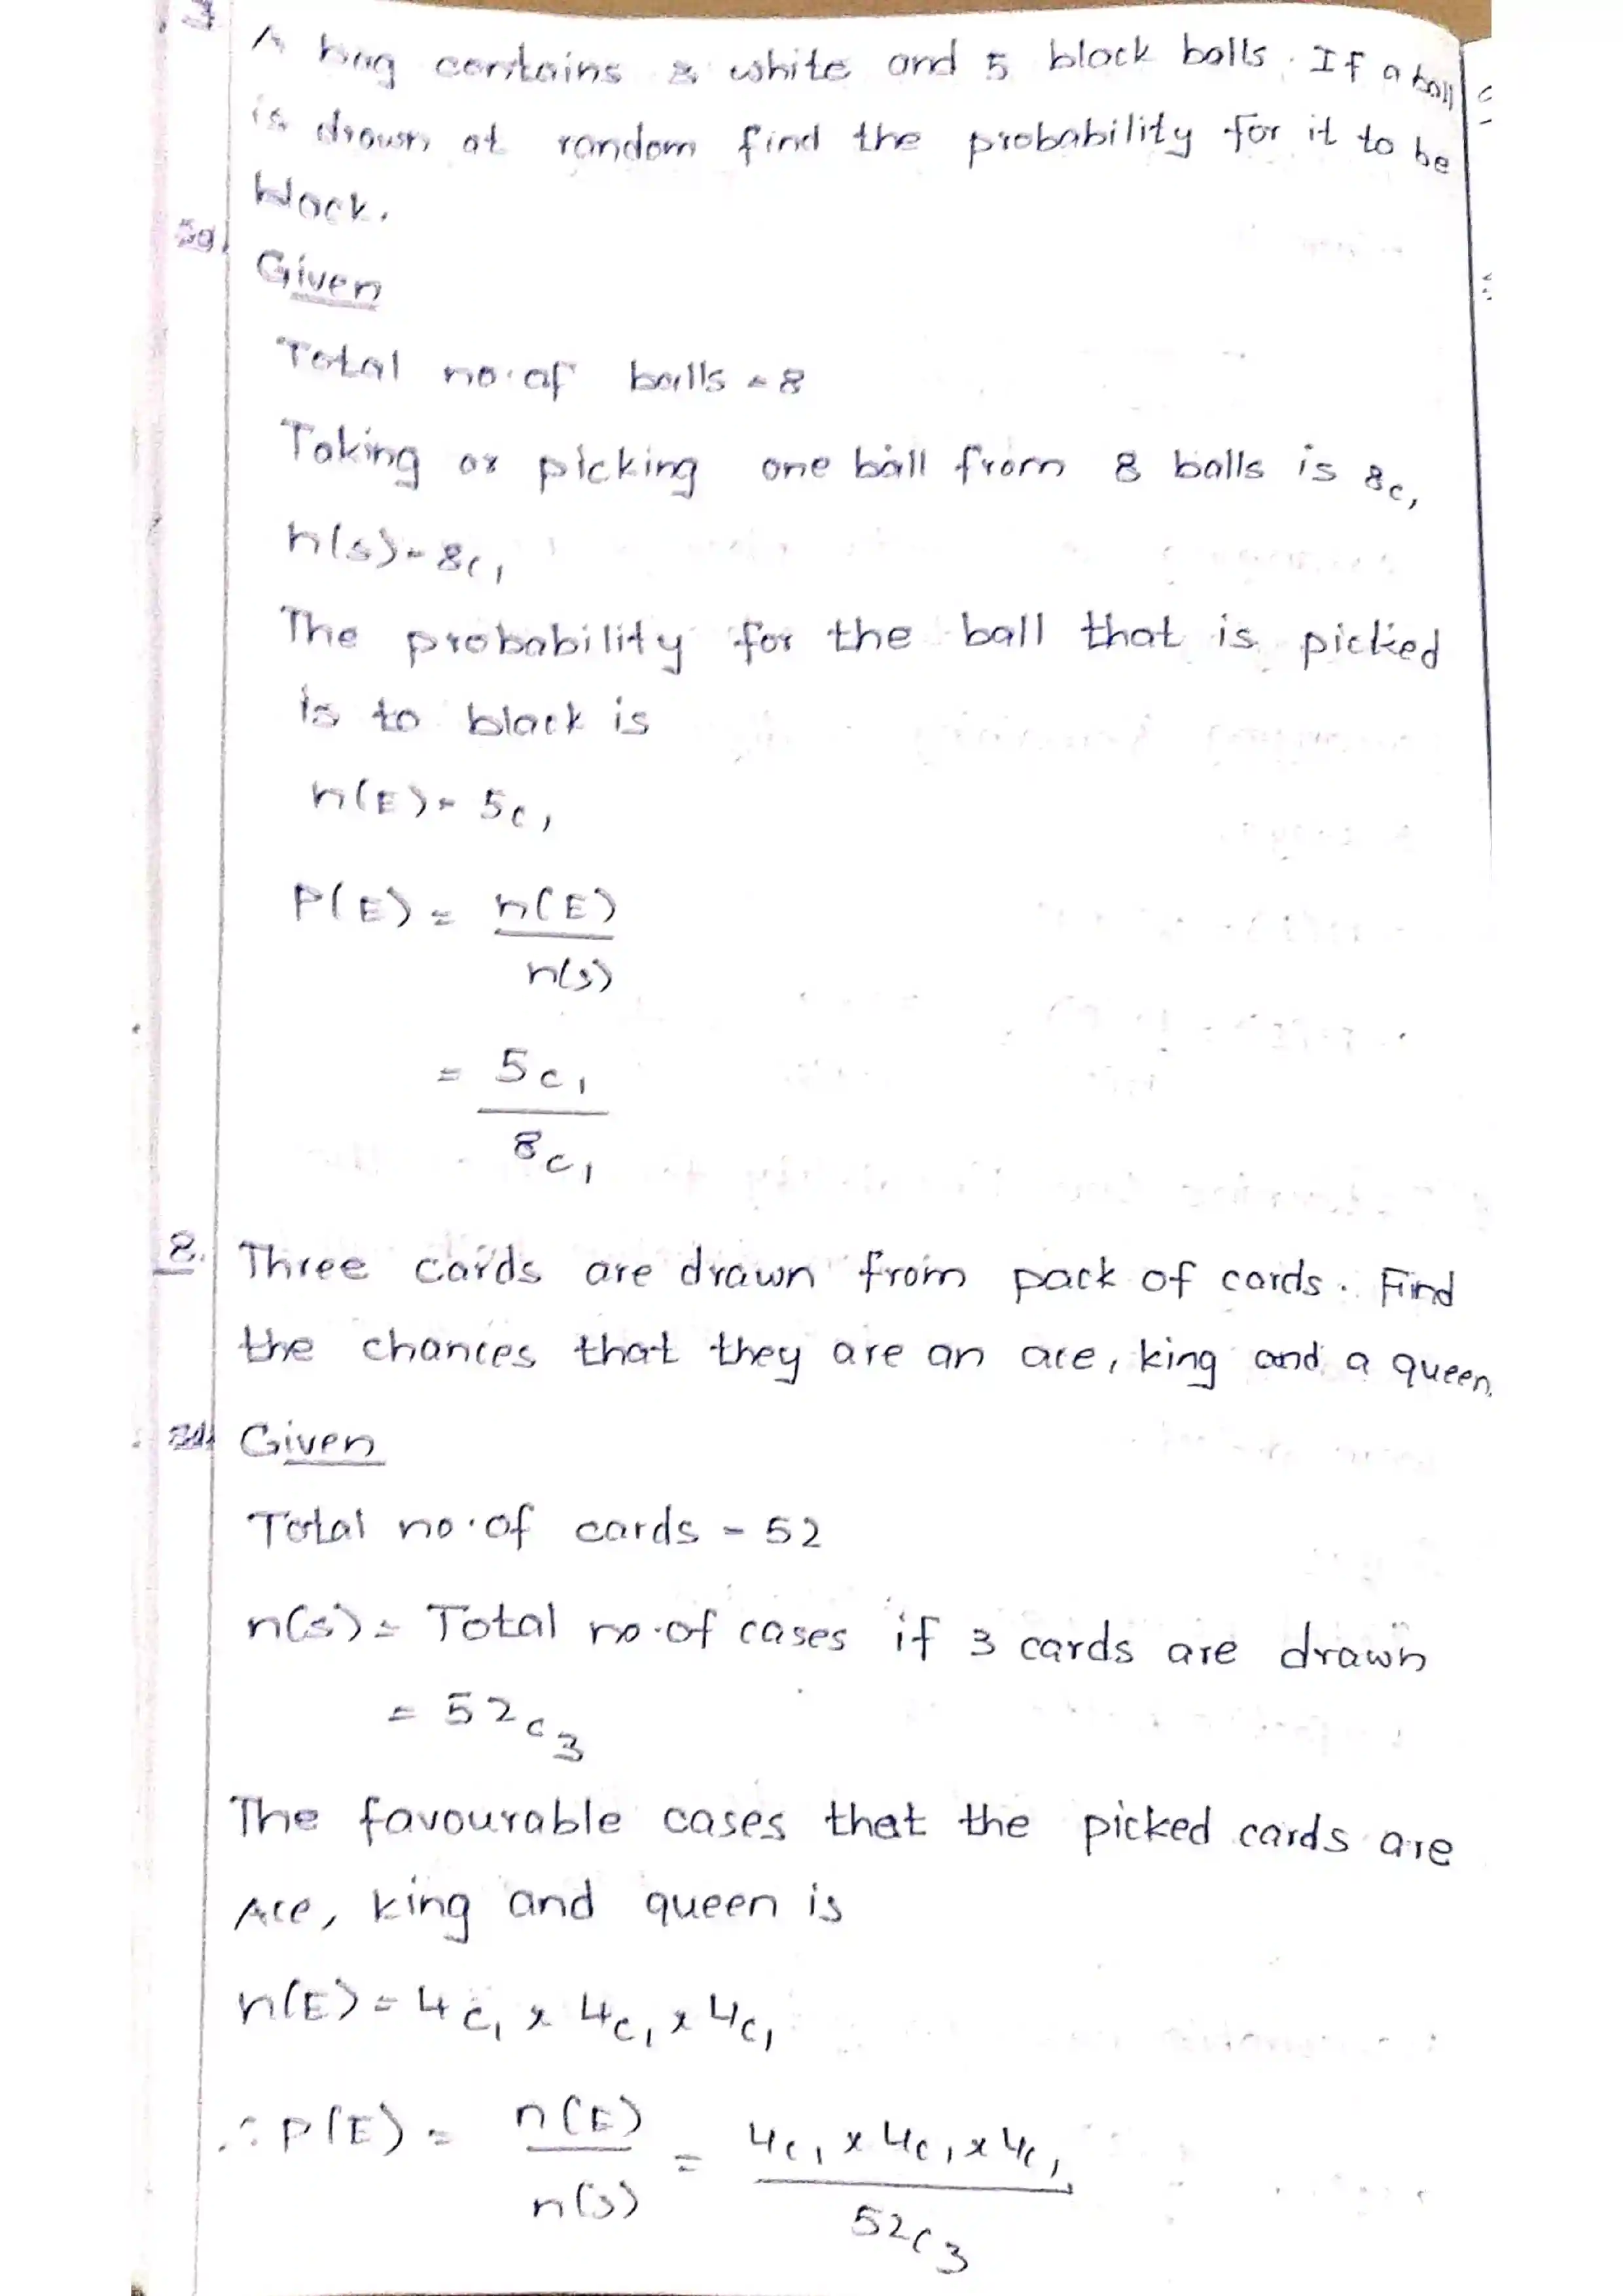 7 A bag contains 3 white and 5 black balls. If a ball
is drawn at random find the probability for it to be
black.
Sol.
Given
Total no.of balls = 8
Taking or picking one ball from 8 balls is 8c₁
n(s) = 8c₁
The probability for the ball that is picked
is to black is
n(E) = 5c₁
P(E) = n(E)
n(s)
= 5c₁
8c₁
8. Three cards are drawn from pack of cards. Find
the chances that they are an ace, king and a queen.
Sol. Given
Total no.of cards = 52
n(s) = Total no.of cases if 3 cards are drawn
= 52c₃
The favourable cases that the picked cards are
Ace, king and queen is
n(E) = 4c₁ x 4c₁ x 4c₁
∴ P(E) = n(E) = 4c₁ x 4c₁ x 4c₁
n(s) 52c₃